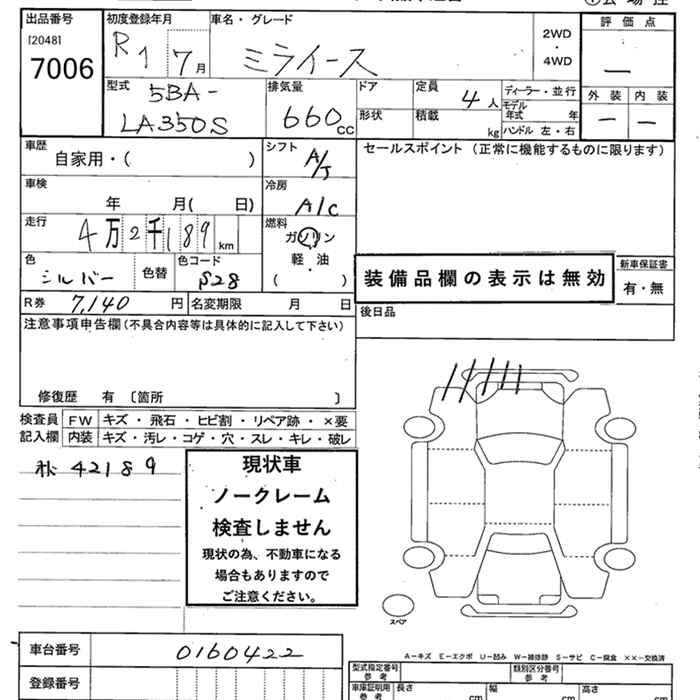 出品番号
[2048]
7006
初度登録年月
R1 7月
車名・グレード
ミライース
2WD
・
4WD
評価点
―
外装 内装
― ―
型式
5BA-
LA350S
排気量
660 CC
ドア
形状
定員
4人
積載
kg
ディーラー・並行
モデル
年式 年
ハンドル 左・右
車歴
自家用・( )
シフト
A/T
セールスポイント (正常に機能するものに限ります)
車検
年 月( 日)
冷房
A/C
走行
4万2千189km
燃料
ガソリン
・
軽油
( )
色
シルバー
色替
色コード
S28
装備品欄の表示は無効
新車保証書
有・無
R券 7,140円
名変期限 月 日
後日品
注意事項申告欄(不具合内容等は具体的に記入して下さい)
修復歴 有 〔箇所 〕
検査員
記入欄
FW キズ・飛石・ヒビ割・リペア跡・×要
内装 キズ・汚レ・コゲ・穴・スレ・キレ・破レ
42189
現状車
ノークレーム
検査しません
現状の為、不動車になる
場合もありますので
ご注意ください。
スペア
A-キズ E-エクボ U-凹み W-補修跡 S-サビ C-腐食 ××-交換済
車台番号 0160422
登録番号
型式指定番号
参考
類別区分番号
参考
車庫証明用
参考
長さ cm
幅 cm
高さ cm